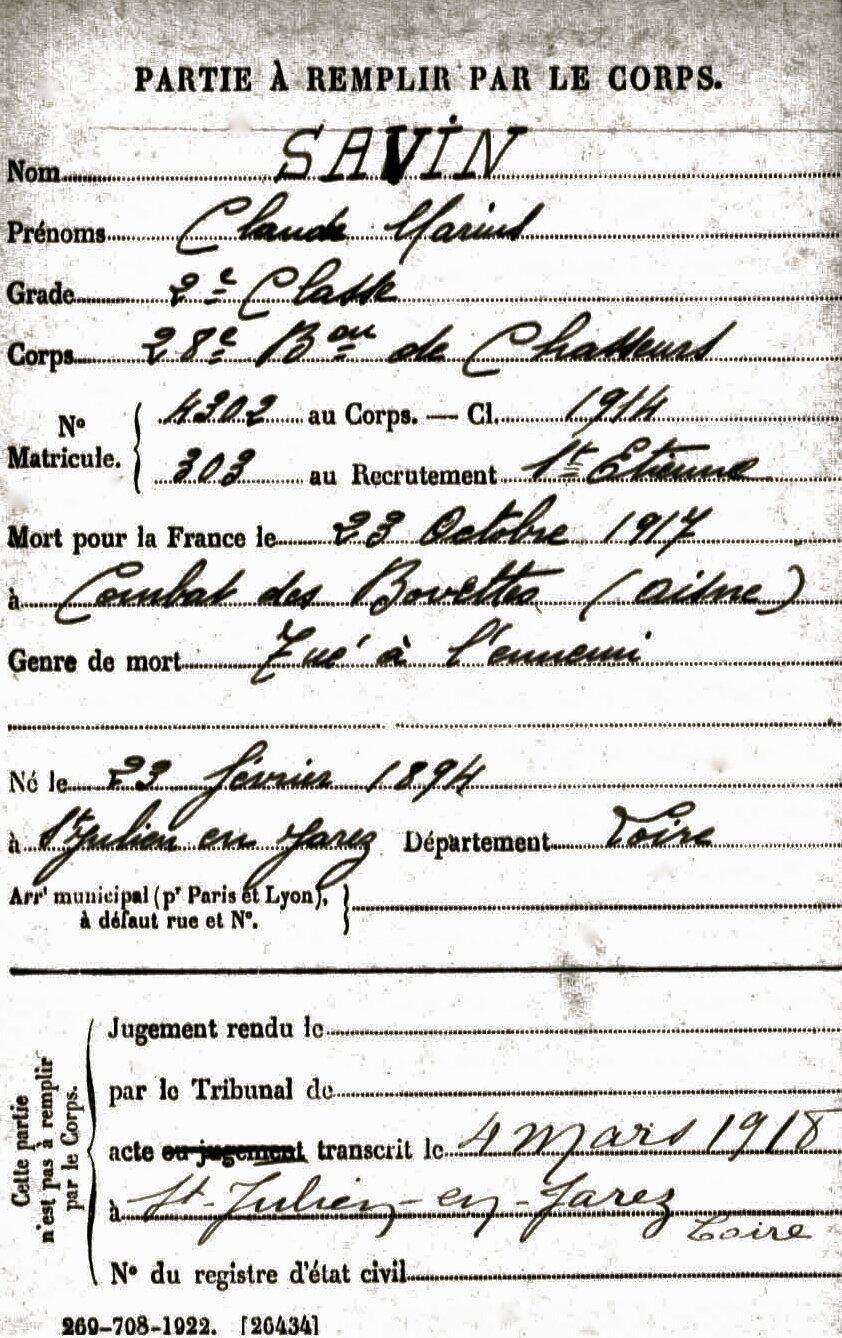 PARTIE À REMPLIR PAR LE CORPS.
Nom SAVIN
Prénoms Claude Marius
Grade 2e Classe
Corps 28e Bon de Chasseurs
No Matricule. { 4302 au Corps. — Cl. 1914
303 au Recrutement St Etienne
Mort pour la France le 23 Octobre 1917
à Combat des Bovettes (Aisne)
Genre de mort Tué à l'ennemi
Né le 23 février 1894
à St Julien en Jarez Département Loire
Arrt municipal (pr Paris et Lyon), }
à défaut rue et No.
Cette partie
n'est pas à remplir
par le Corps.
Jugement rendu le
par le Tribunal de
acte ou jugement transcrit le 4 mars 1918
à St-Julien-en-Jarez
Loire
No du registre d'état civil
269-708-1922. [26434]